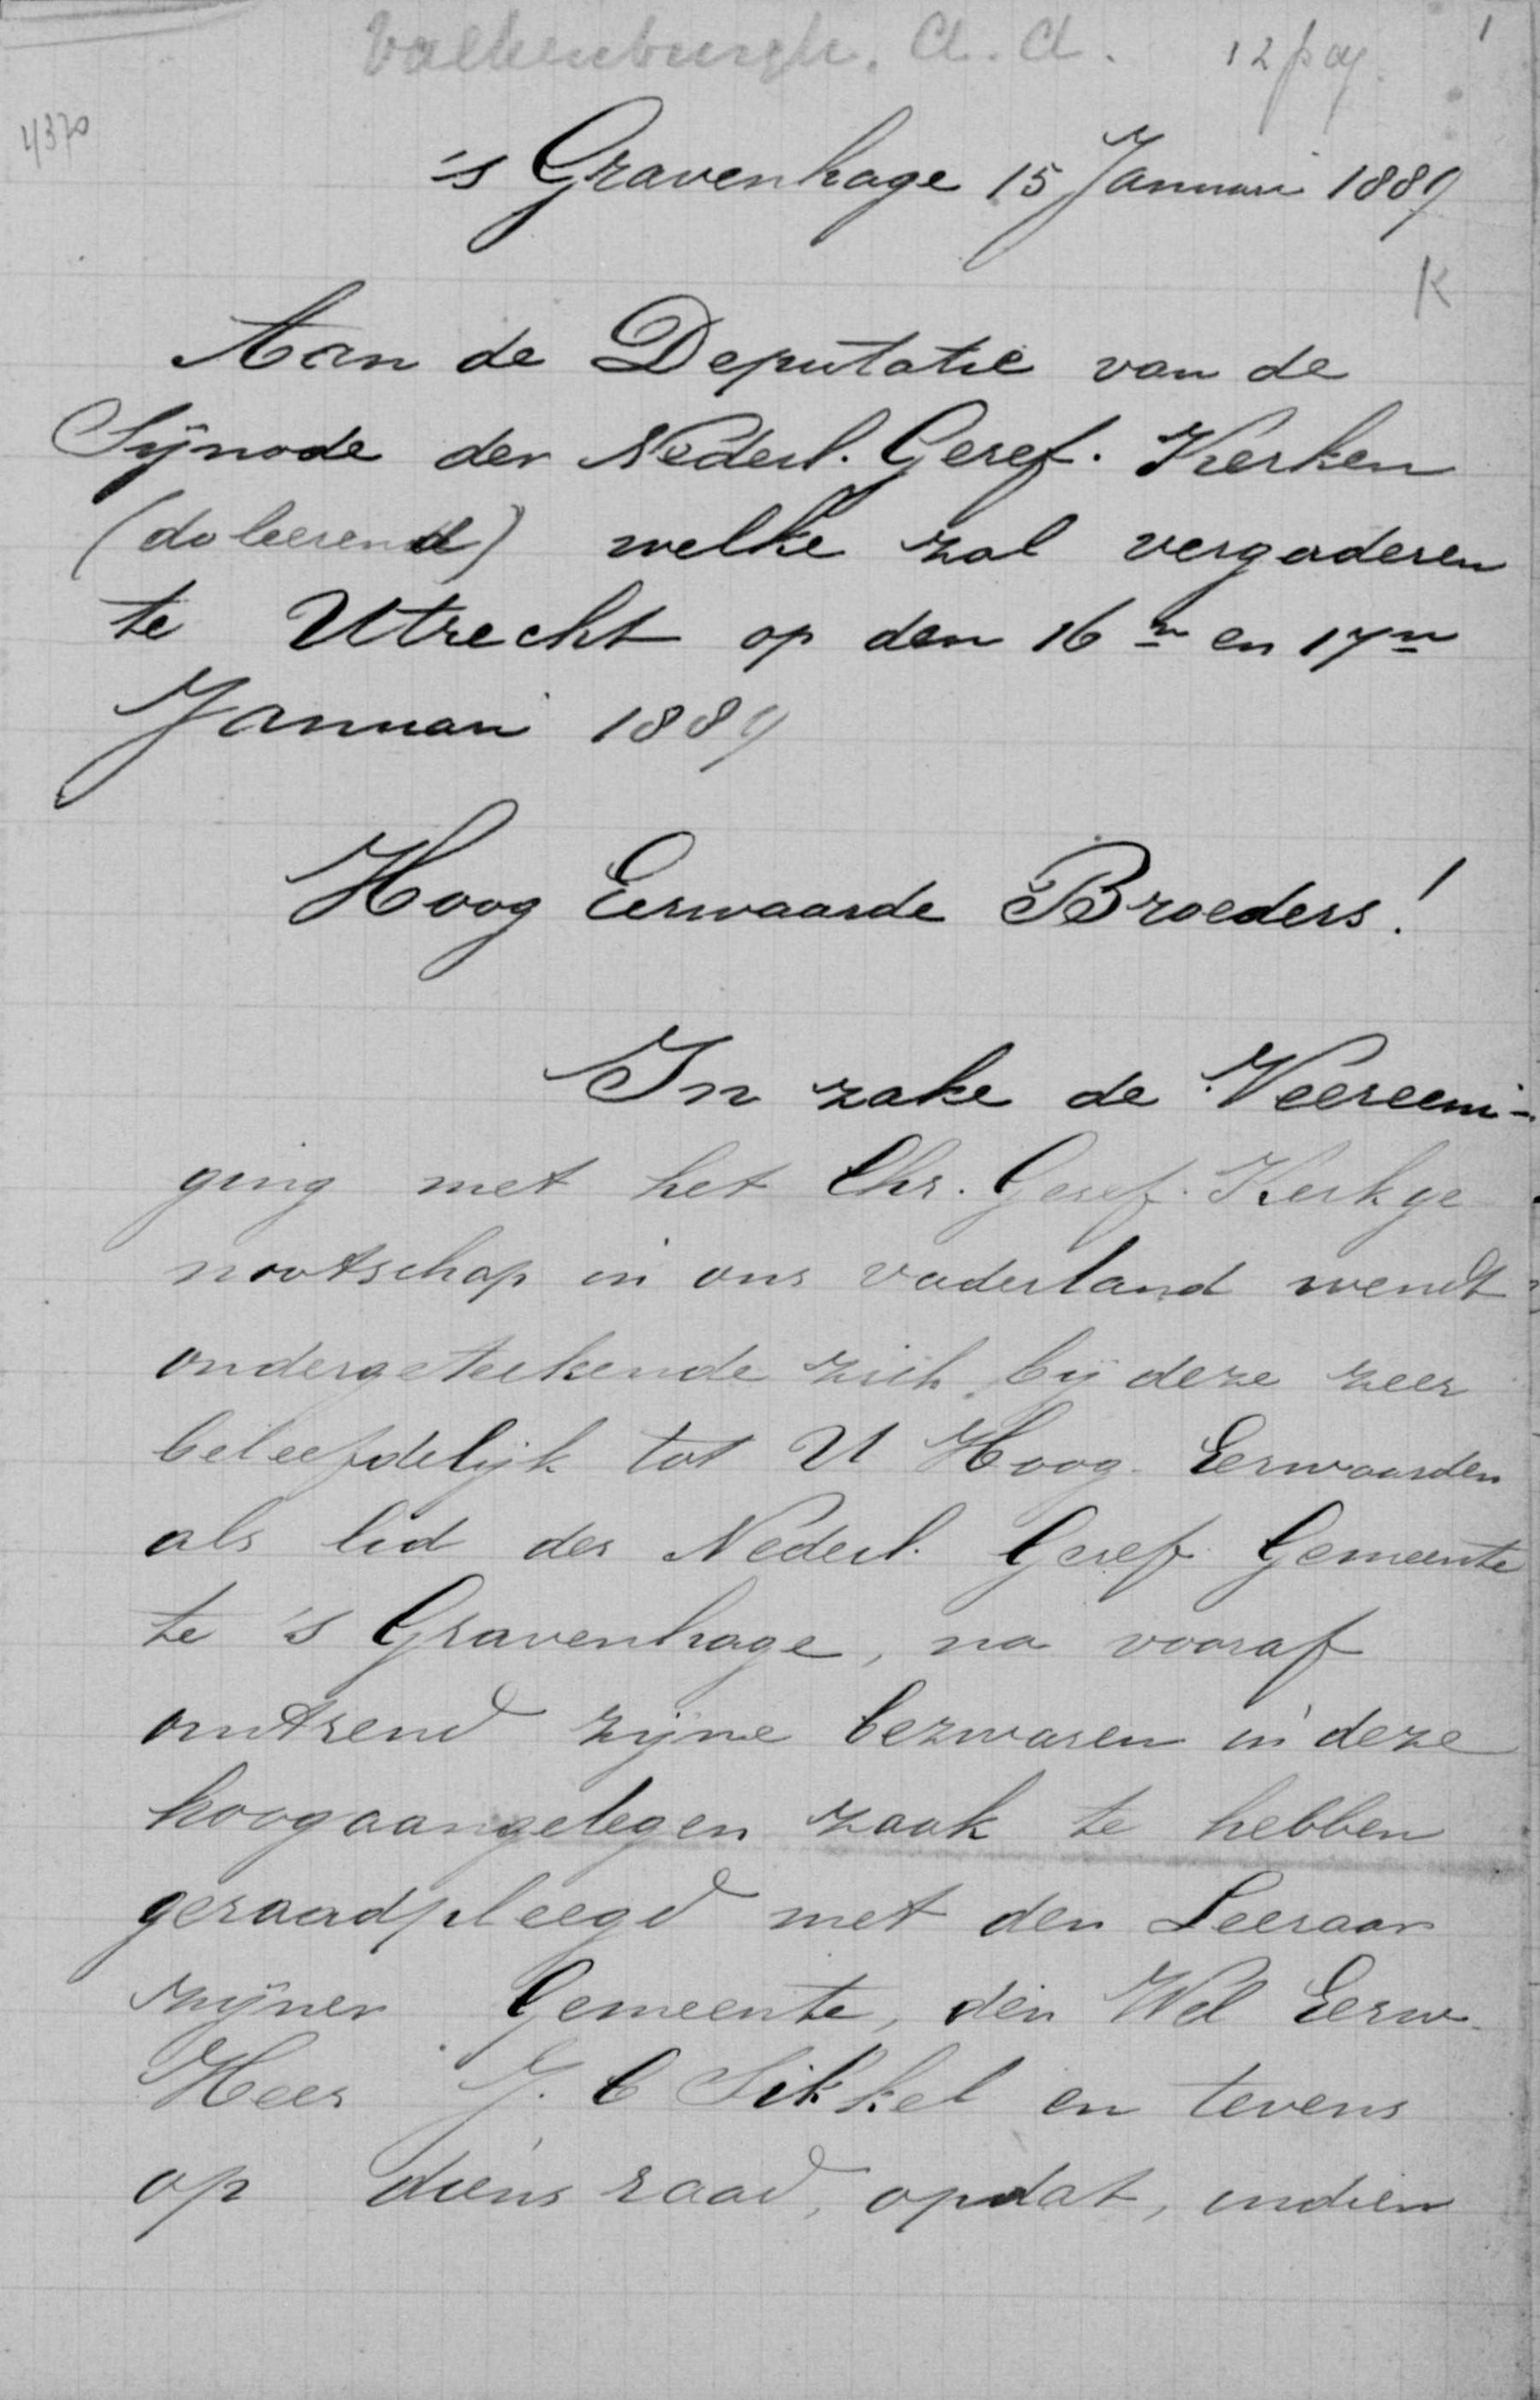 Valkenburgh. A. A. 12 pag. 1
4370
's Gravenhage 15 Januari 1889
K
Aan de Deputatie van de
Sÿnode der Nederl. Geref. Kerken
(doleerend) welke zal vergaderen
te Utrecht op den 16n en 17n
Januari 1889
Hoog Eerwaarde Broeders!
In zake de Vereeni-
ging met het Chr. Geref. Kerkge
nootschap in ons vaderland wendt
ondergeteekende zich bij deze zeer
beleefdelijk tot U Hoog Eerwaarden
als lid der Nederl. Geref. Gemeente
te 's Gravenhage, na vooraf
omtrend zijne bezwaren in deze
hoogaangelegen zaak te hebben
geraadpleegd met den Leeraar
zijner Gemeente, den Wel Eerw.
Heer J. C Sikkel en tevens
op diens raad, opdat, indien